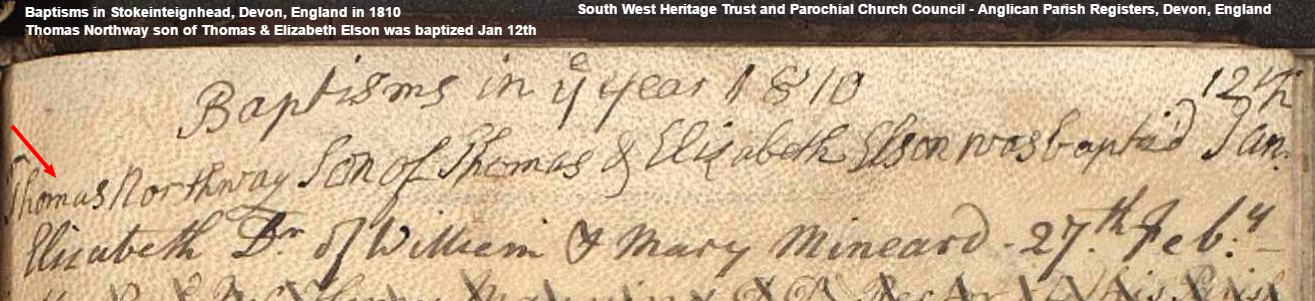 Baptisms in Stokeinteignhead, Devon, England in 1810
South West Heritage Trust and Parochial Church Council - Anglican Parish Registers, Devon, England
Thomas Northway son of Thomas & Elizabeth Elson was baptized Jan 12th
Baptisms in ye year 1810
12th
Thomas Northway Son of Thomas & Elizabeth Elson was baptiz'd Jan.
Elizabeth Dr. of William & Mary Mineard - 27.th Feb.y